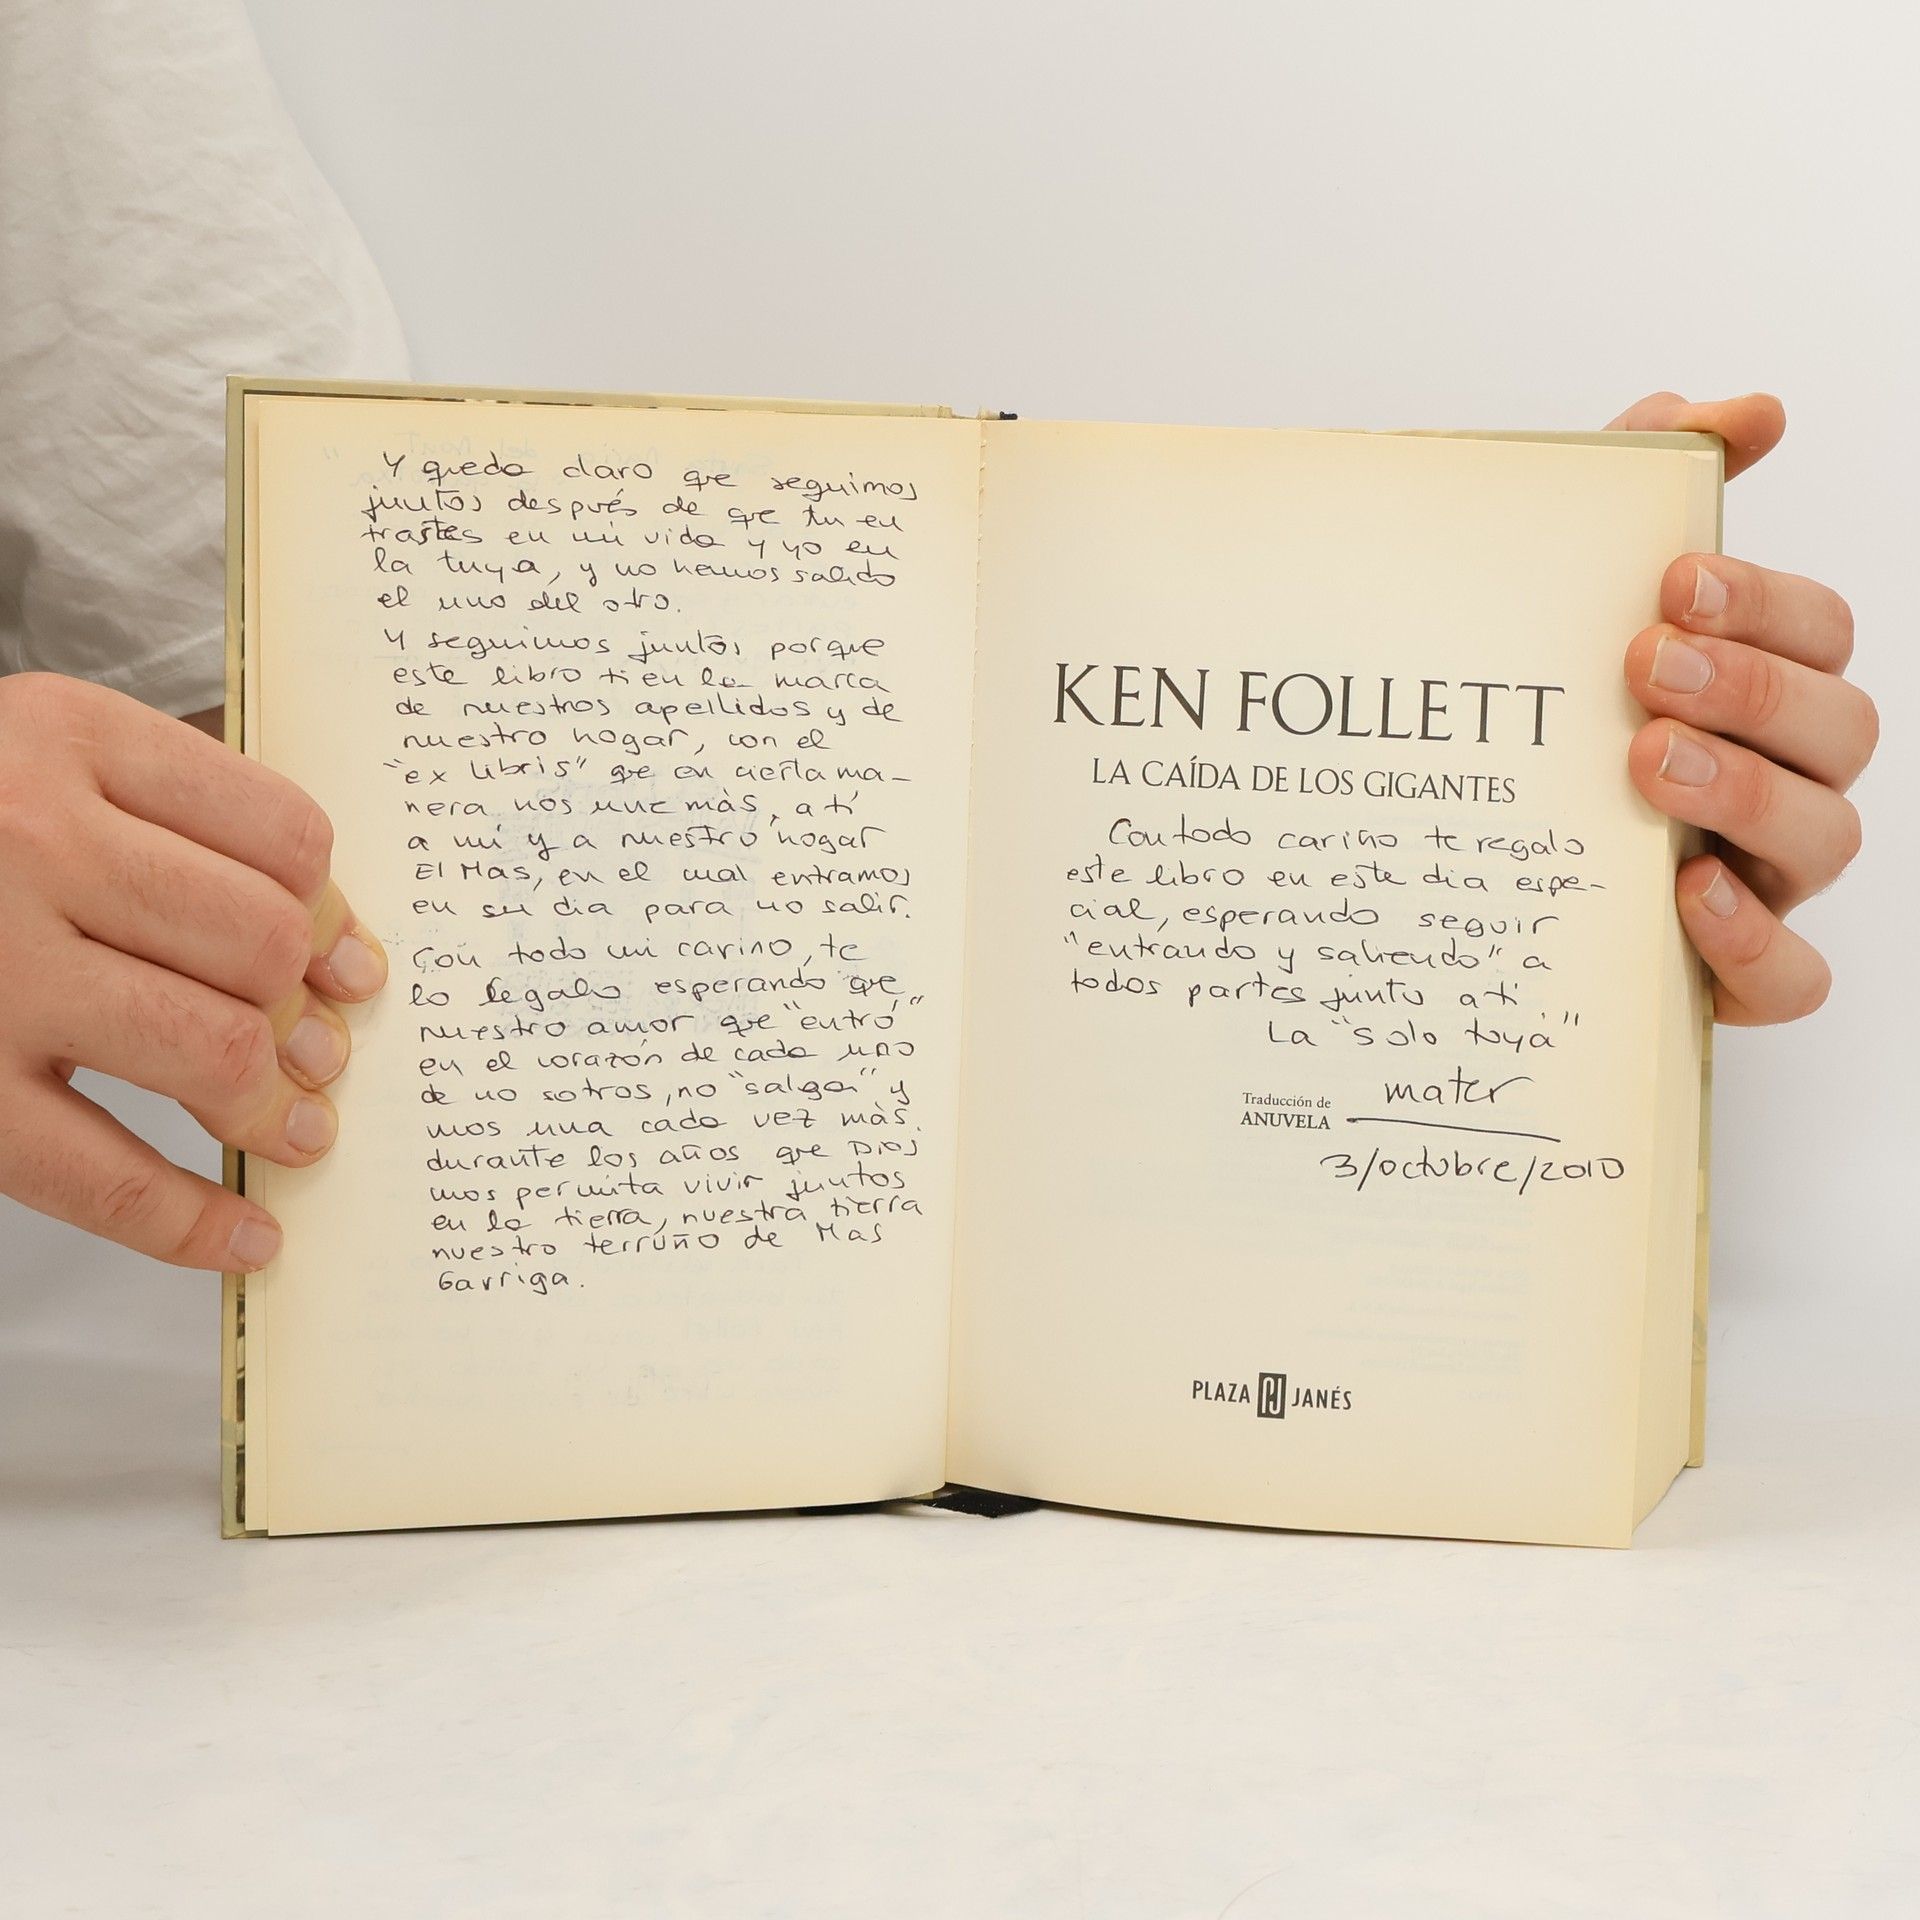 Y queda claro que seguimos
juntos después de que tu en
trastes en mi vida y yo en
la tuya, y no hemos salido
el uno del otro.
Y seguimos juntos porque
este libro tien la marca
de nuestros apellidos y de
nuestro hogar, con el
"ex libris" que en cierta ma-
nera nos une màs, a tí
a mí y a nuestro hogar
El Mas, en el cual entramos
en su dia para no salir.
Con todo mi carino, te
lo regalo esperando que
nuestro amor que "entró"
en el corazón de cada uno
de nosotros, no "salga" y
nos una cada vez màs
durante los años que Dios
nos permita vivir juntos
en la tierra, nuestra tierra
nuestro terruño de Mas
Garriga.
KEN FOLLETT
LA CAÍDA DE LOS GIGANTES
Con todo cariño te regalo
este libro en este dia espe-
cial, esperando seguir
"entrando y saliendo" a
todos partes junto a tí
La "solo tuya"
mater
Traducción de
ANUVELA
3/octubre/2010
PLAZA JANÉS